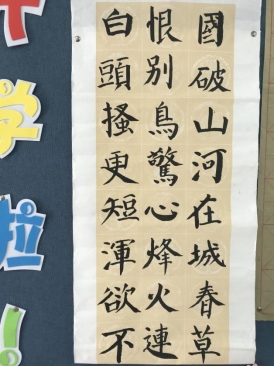 國破山河在城春草
恨别鳥驚心烽火連
白頭搔更短渾欲不
学
!